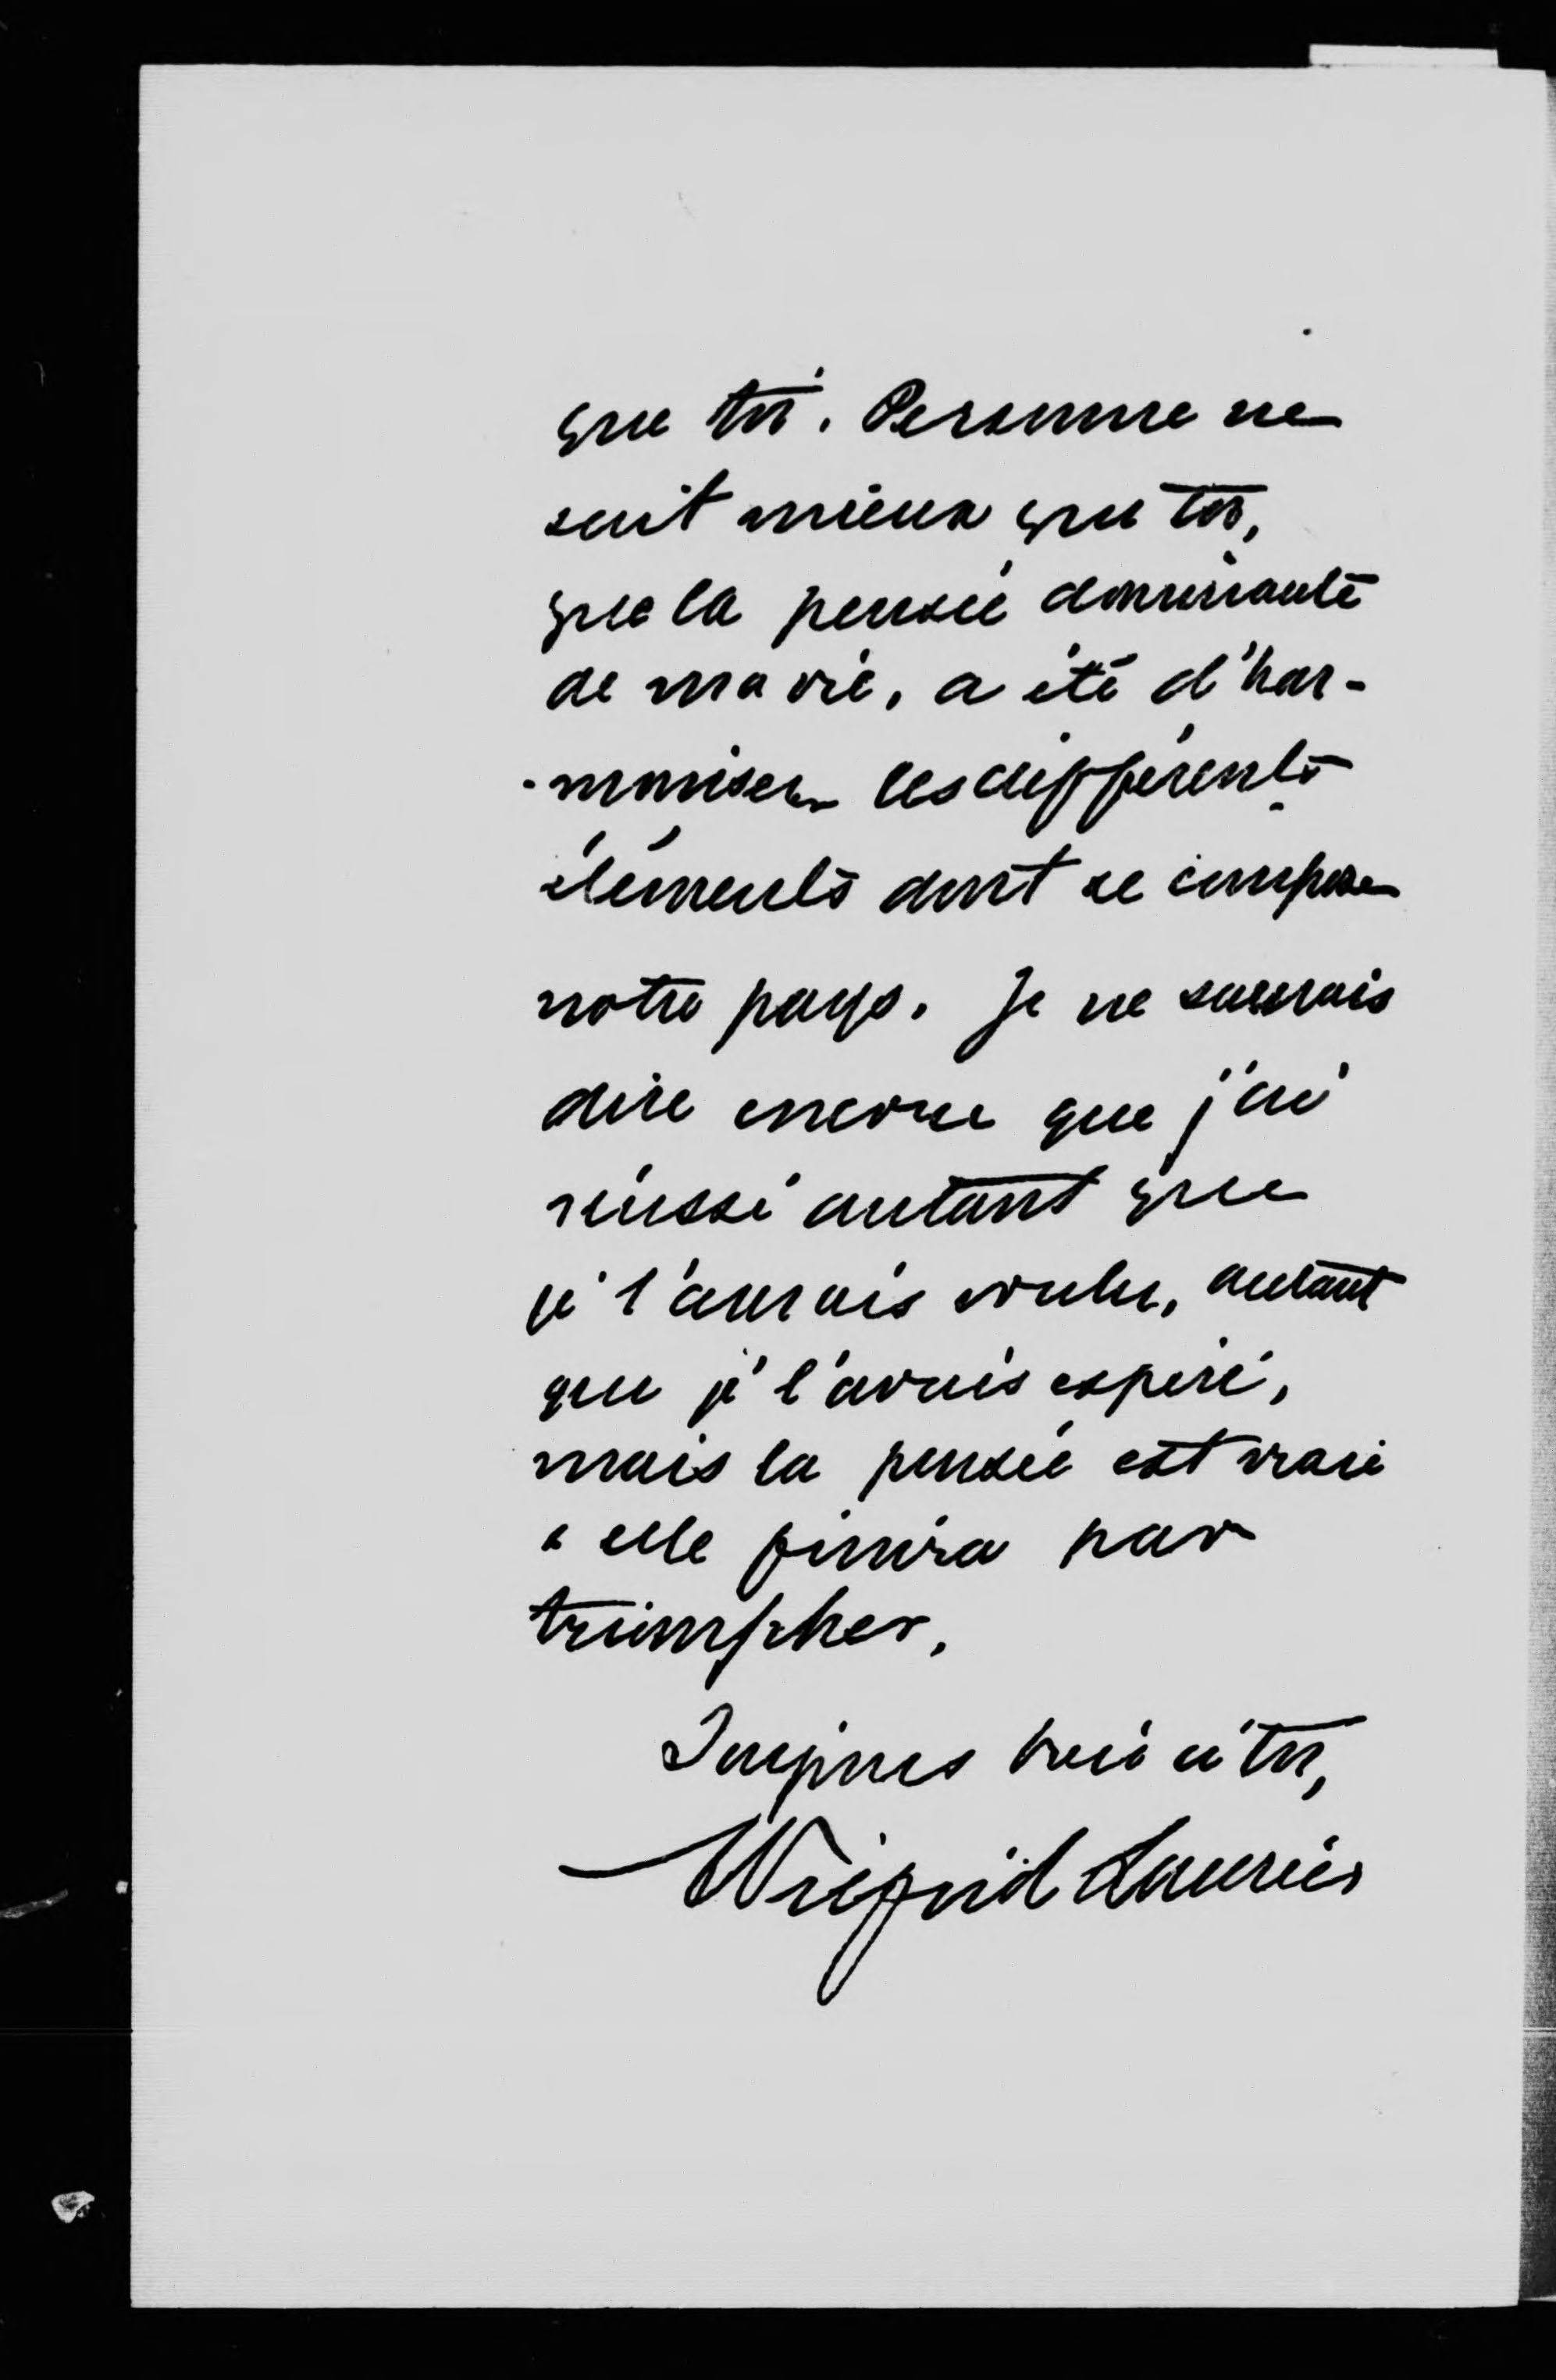 que toi. Personne ne
sait mieux que toi,
que la pensée dominante
de ma vie, a été d'har-
-moniser les différents
éléments dont se compose
notre pays. Je ne saurais
dire encore que j'ai
réussi autant que
je l'aurais voulu, autant
que je l'avais espéré,
mais la pensée est vraie
& elle finira par
triompher.
Toujours bien à toi,
Wilfrid Laurier